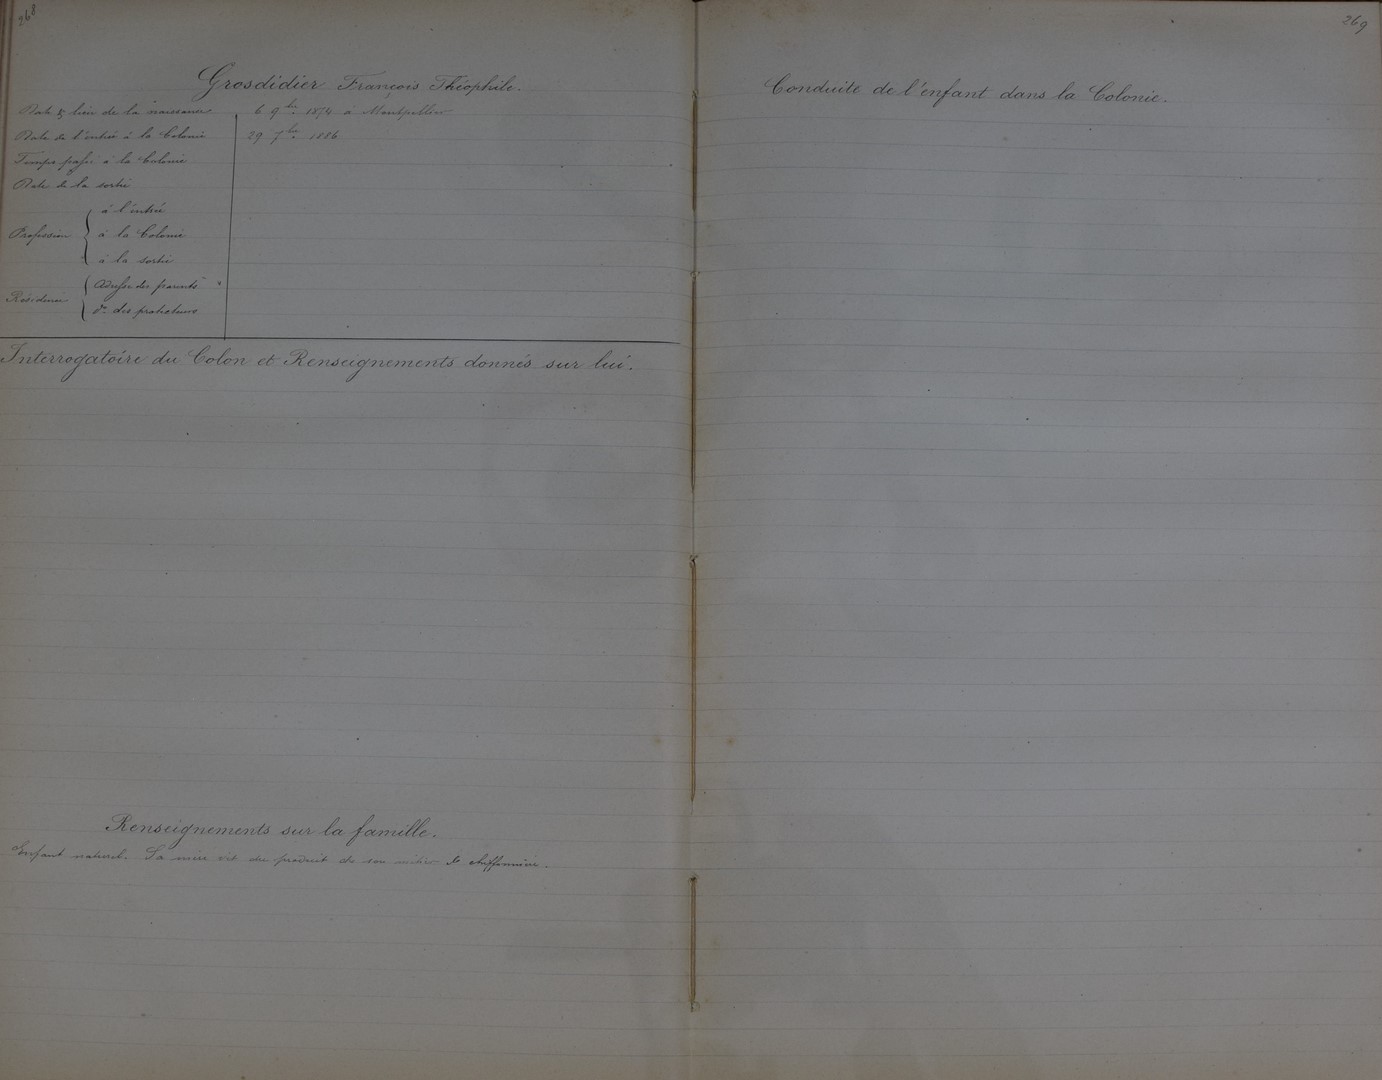 268
Grosdidier François Théophile.
Date & lieu de la naissance
6 9bre 1874 à Montpellier
Date de l'entrée à la Colonie
29 7bre 1886
Temps passé à la Colonie
Date de la sortie
Profession
à l'entrée
à la Colonie
à la sortie
Résidence
Adresse des parents
do des protecteurs
Interrogatoire du Colon et Renseignements donnés sur lui.
Renseignements sur la famille.
Enfant naturel. Sa mère vit du produit de son métier de chiffonnière.
269
Conduite de l'enfant dans la Colonie.